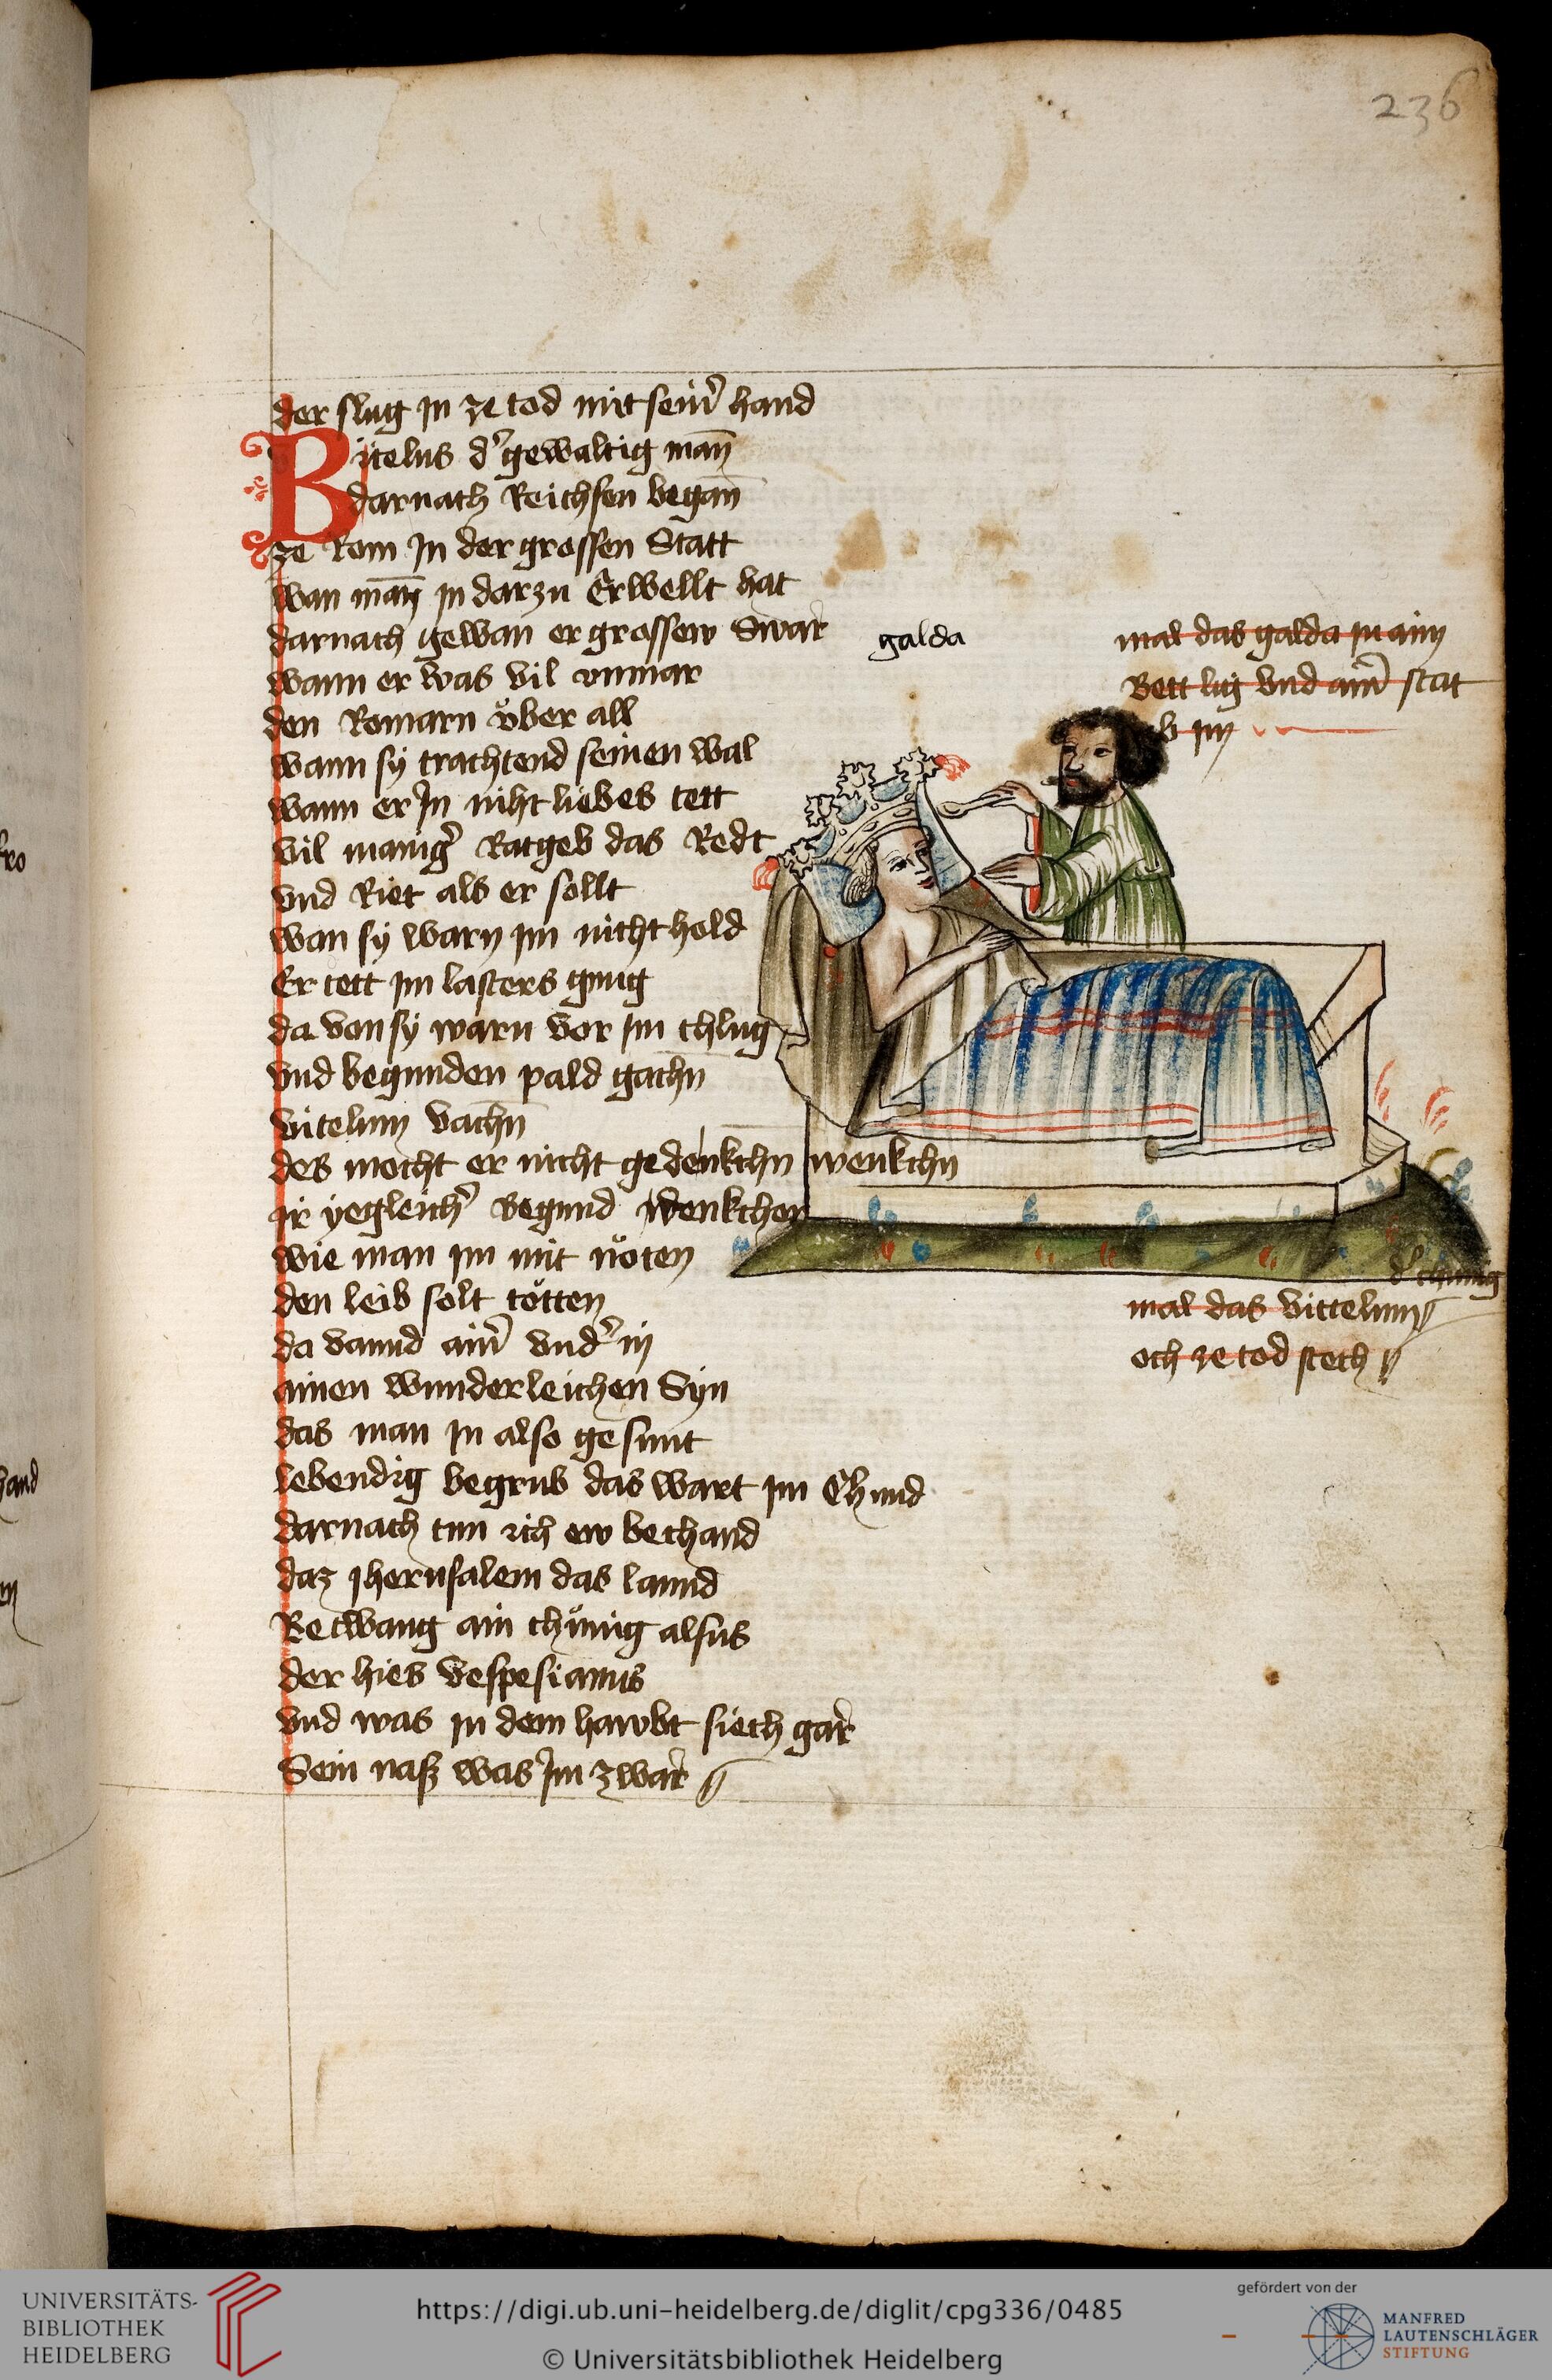 236
der slug in ze tod mit seim̄ hand
Bitelus d' gewaltig man̄
darnach Reichsen began̄
ze Rom In der grossen Statt
wan man̄ in darzu Erwellt hat
darnach gewan er grossew Swar
wann er was vil vnmar
den Romarn vͦber all
wann sy trachtend seinen wal
wann er In niht liebes tett
vil manig' Ratgeb das Redt
vnd Riet als er sollt
wan sy warn im nicht hold
Er tett im lasters gnug
da von sy warn vor im chlug
vnd begunden pald gachn̄
vitelum vachn̄
des mocht er nicht gedenkchn wenkchn
ir yegleich' Begund denkchen
wie man im mit nöten
den leib solt tötten
da vannd aim̄ vnd' in
ainen wunderleichen Syn
das man in also gesunt
lebendig begrub das wart im Chund
darnach tun ich ew bechand
daz Jherusalem das lannd
Betwang ain chünig alsus
der hies vespesianus
vnd was in dem hawbt siech gar
Sein nasz was Im zwar
galda
mal das galda in aim
Bett lig vnd aim̄ stat
b im
d' chunig
mal das vittelum
och ze tod stech
fro
hand
en
UNIVERSITÄTS-
BIBLIOTHEK
HEIDELBERG
https://digi.ub.uni-heidelberg.de/diglit/cpg336/0485
© Universitätsbibliothek Heidelberg
gefördert von der
MANFRED
LAUTENSCHLÄGER
STIFTUNG